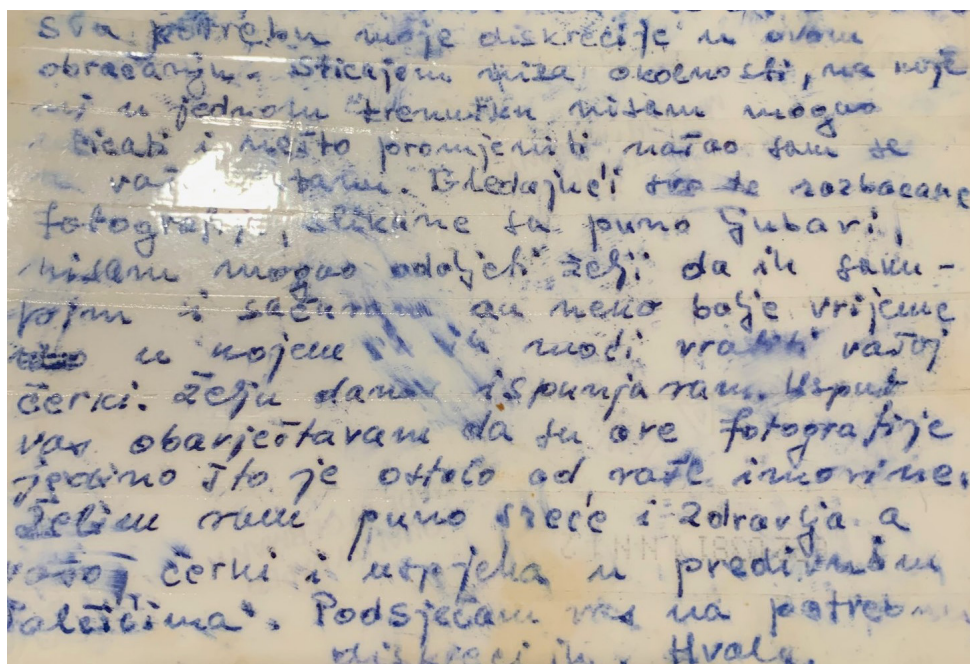 Sva potrebu moje diskrecije u ovom
obraćanju. Sticajem niza okolnosti, na koje
ni u jednom trenutku nisam mogao
uticati i nešto promjeniti našao sam se
u stanu. Gledajući te razbacane
fotografije, slikane sa puno ljubavi,
nisam mogao odoljeti želji da ih saku-
pim i sačuvam za neko bolje vrijeme
u kojem ih moći vratiti vašoj
ćerki. Želju danas ispunjavam. Usput
vas obavještavam da su ove fotografije
jedino što je ostalo od vaše imovine.
Želim vam puno sreće i zdravlja a
vašoj ćerki i uspjeha u predivnim
Podsjećam vas na potrebnu
diskreciju. Hvala.